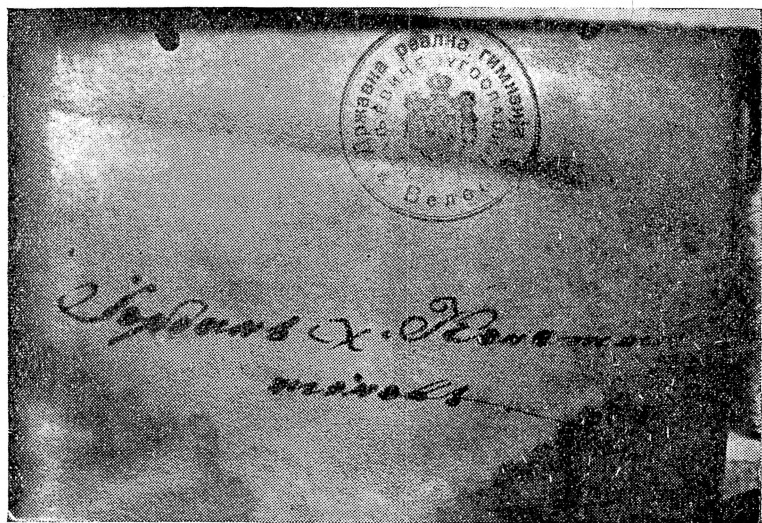 Државна реална гимназија
Велес
Йорданъ х. Констан
тиновъ